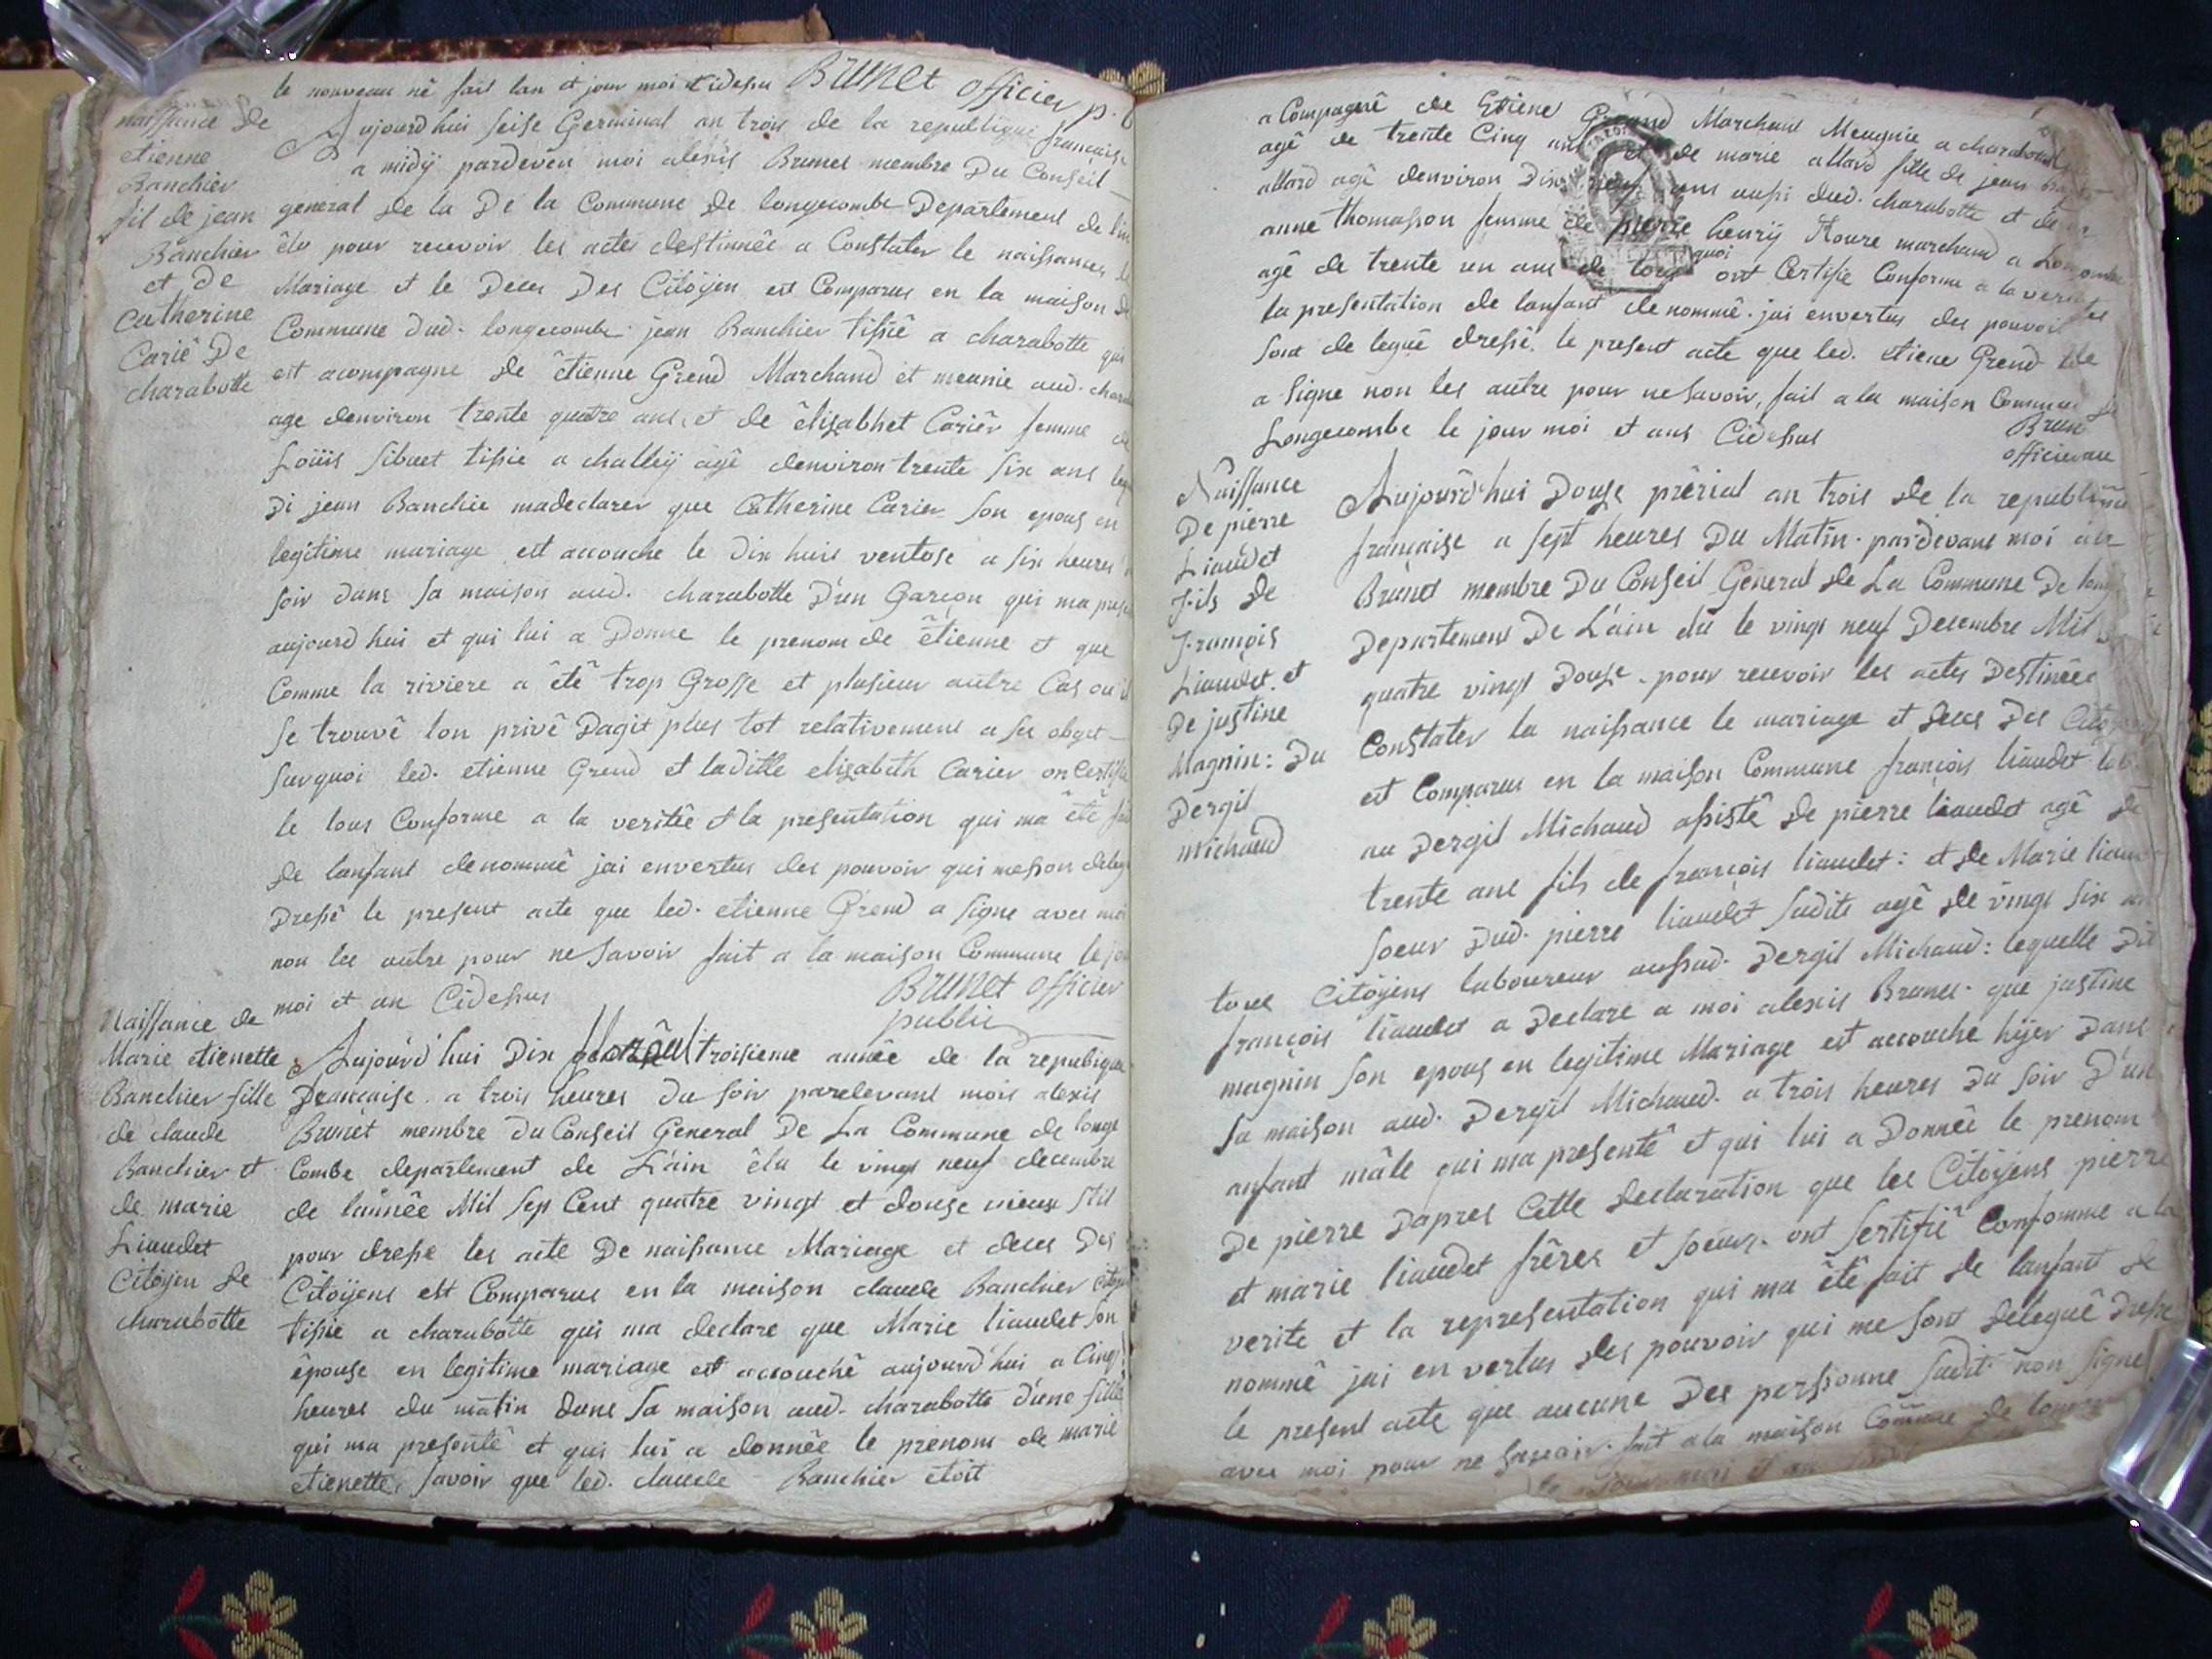 le nouveau né fait lan et jour moi Cidesu Brunet officier p.
naissance de
etienne
Banchier
fil de jean
Banchier
et de
Catherine
Cariê De
charabotte
Aujourd hui seise Germinal an trois de la republique francaise
a midÿ pardeven moi alexis Brunet membre Du Conseil
general de la De la Commune de longecombe Departement de
êlu pour recevoir les actes destinnée a Constater le naissances
Mariage et le Deces Des Citoÿen est Comparus en la maison
Commune dud. longecombe jean Banchier tissiê a charabotte qui
est acompagne de êtienne Grend Marchand et meunie aud.
age denviron trente quatre ans, et de êlisabhet Cariêr femme
Loüis sibuet tissie a challeÿ âgê denviron trente six ans
Di jean Banchie madeclarer que Catherine Carier son epous en
legitime mariage est accouche le dix huit ventose a six heures
soir dans sa maison aud. charabotte D'un Garçon qui ma
aujourd hui et qui lui a Donne le prenom de êtienne et que
Comme la riviere a êtê trop Grosse et plusieur autre Cas
se trouvê lon privê Dagit plus tot relativement a
surquoi led. etienne Grend et laditte elisabeth Carier on
le tous Conforme a la veritêe et la presentation qui ma êtê
de lanfant denommê jai envertus des pouvoir qui messon
Dressê le present acte que led. etienne Grend a signe avec moi
non les autre pour ne savoir fait a la maison Commune le
moi et an Cidessus
Brunet officier
public
Naissance de
Marie etienette
Banchier fille
de claude
Banchier et
de marie
Liaudet
Citoÿen de
charabotte
Aujourd'hui Dix floréal troisieme annêe de la republique
francaise a trois heures du soir pardevant mois alexis
Brunet membre du Conseil General De La Commune de longe
Combe departement de L'ain êlu le vingt neuf decembre
de lannêe Mil sep Cent quatre vingt et douse vieux stil
pour dresse les acte De naissance Mariage et deces Des
Citoÿens est Comparus en la maison claude Banchier
tissie a charabotte qui ma declare que Marie liaudet son
êpouse en legitime mariage est accouchê aujourd'hui a Cinq
heures du matin dans sa maison aud. charabotte d'une fille
qui ma presentê et qui lui a donnêe le prenom de marie
etienette, savoir que led. claude Banchier êtoit
a Compagnê de Etiene Grend Marchand Meugnie a
agê de trente Cinq ans et de marie allard fille de jean
allard agê denviron Dix neuf ans aussi dud. charabotte et de
anne thomasson femme de pierre henrÿ Roure marchand a
agê de trente un ans de tous quoi ont Certifie Conforme a la
la presentation de lanfant denommê. jai envertus des pouvoir
sont de leguê dressê. le present acte que led. etiene Grend
a signe non les autre pour ne savoir, fait a la maison Commune
Longecombe le jour moi et ans Cidessus
Naissance
De pierre
Liaudet
fils de
françois
Liaudet. et
De justine
Magnin: du
Dergit
michaud
Aujourd'hui Douse prêrial an trois de la
française a sept heures Du Matin. pardevant moi
Brunet membre Du Conseil General de La Commune De
Departement De L'ain elu le vingt neuf Decembre Mil
quatre vingt Douse. pour recevoir les actes Destinêes
Constater la naissance le mariage et deces Des
est Comparus en la maison Commune françois liaudet
au Dergit Michaud assistê de pierre liaudet agê de
trente ans fils de françois liaudet: et de Marie
soeur Dud. pierre liaudet sudite agê de vingt six
tous Citoÿens laboureur aussud. Dergit Michaud: lequelle Dit
françois liaudet a Declare a moi alexis Brunet. que justine
magnin son epous en legitime Mariage est accouche hÿer Dans
sa maison aud. Dergit Michaud. a trois heures Du soir D'un
anfant mâle qui ma presentê et qui lui a Donnêe le prenom
De pierre Dapres Cette declaration que les Citoÿens pierre
et marie liaudet frêres et soeurs. ont sertifiê Confomme a la
verite et la representation qui ma êtê fait de lanfant de
nommê jai en vertus des pouvoir qui me sont deleguê
le present acte que aucune Des perssonne sudit non signe
avec moi pour ne savoir. fait a la maison